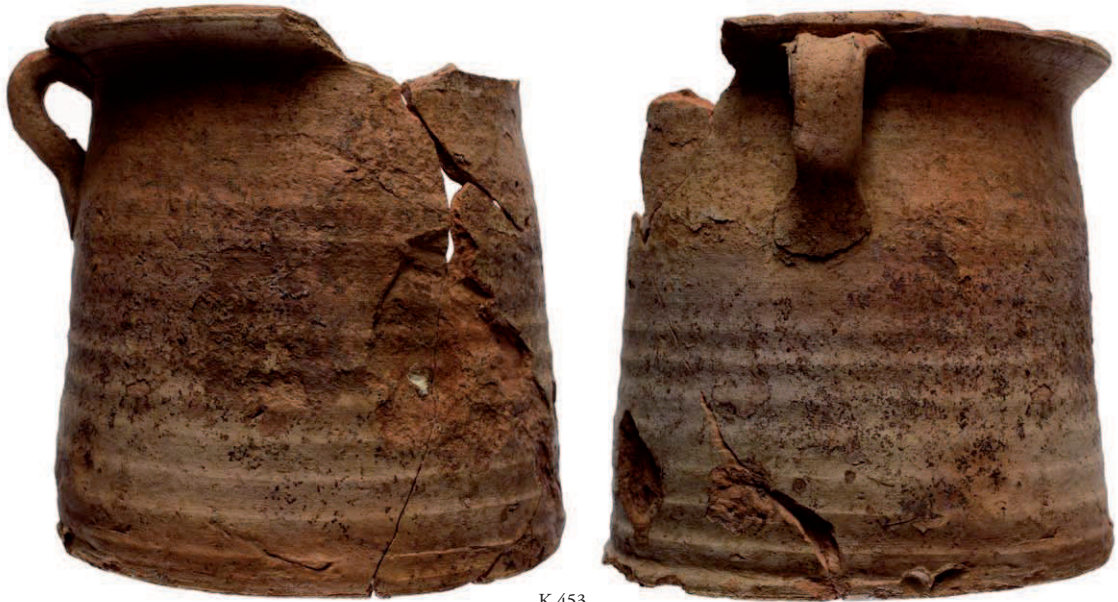 K 453